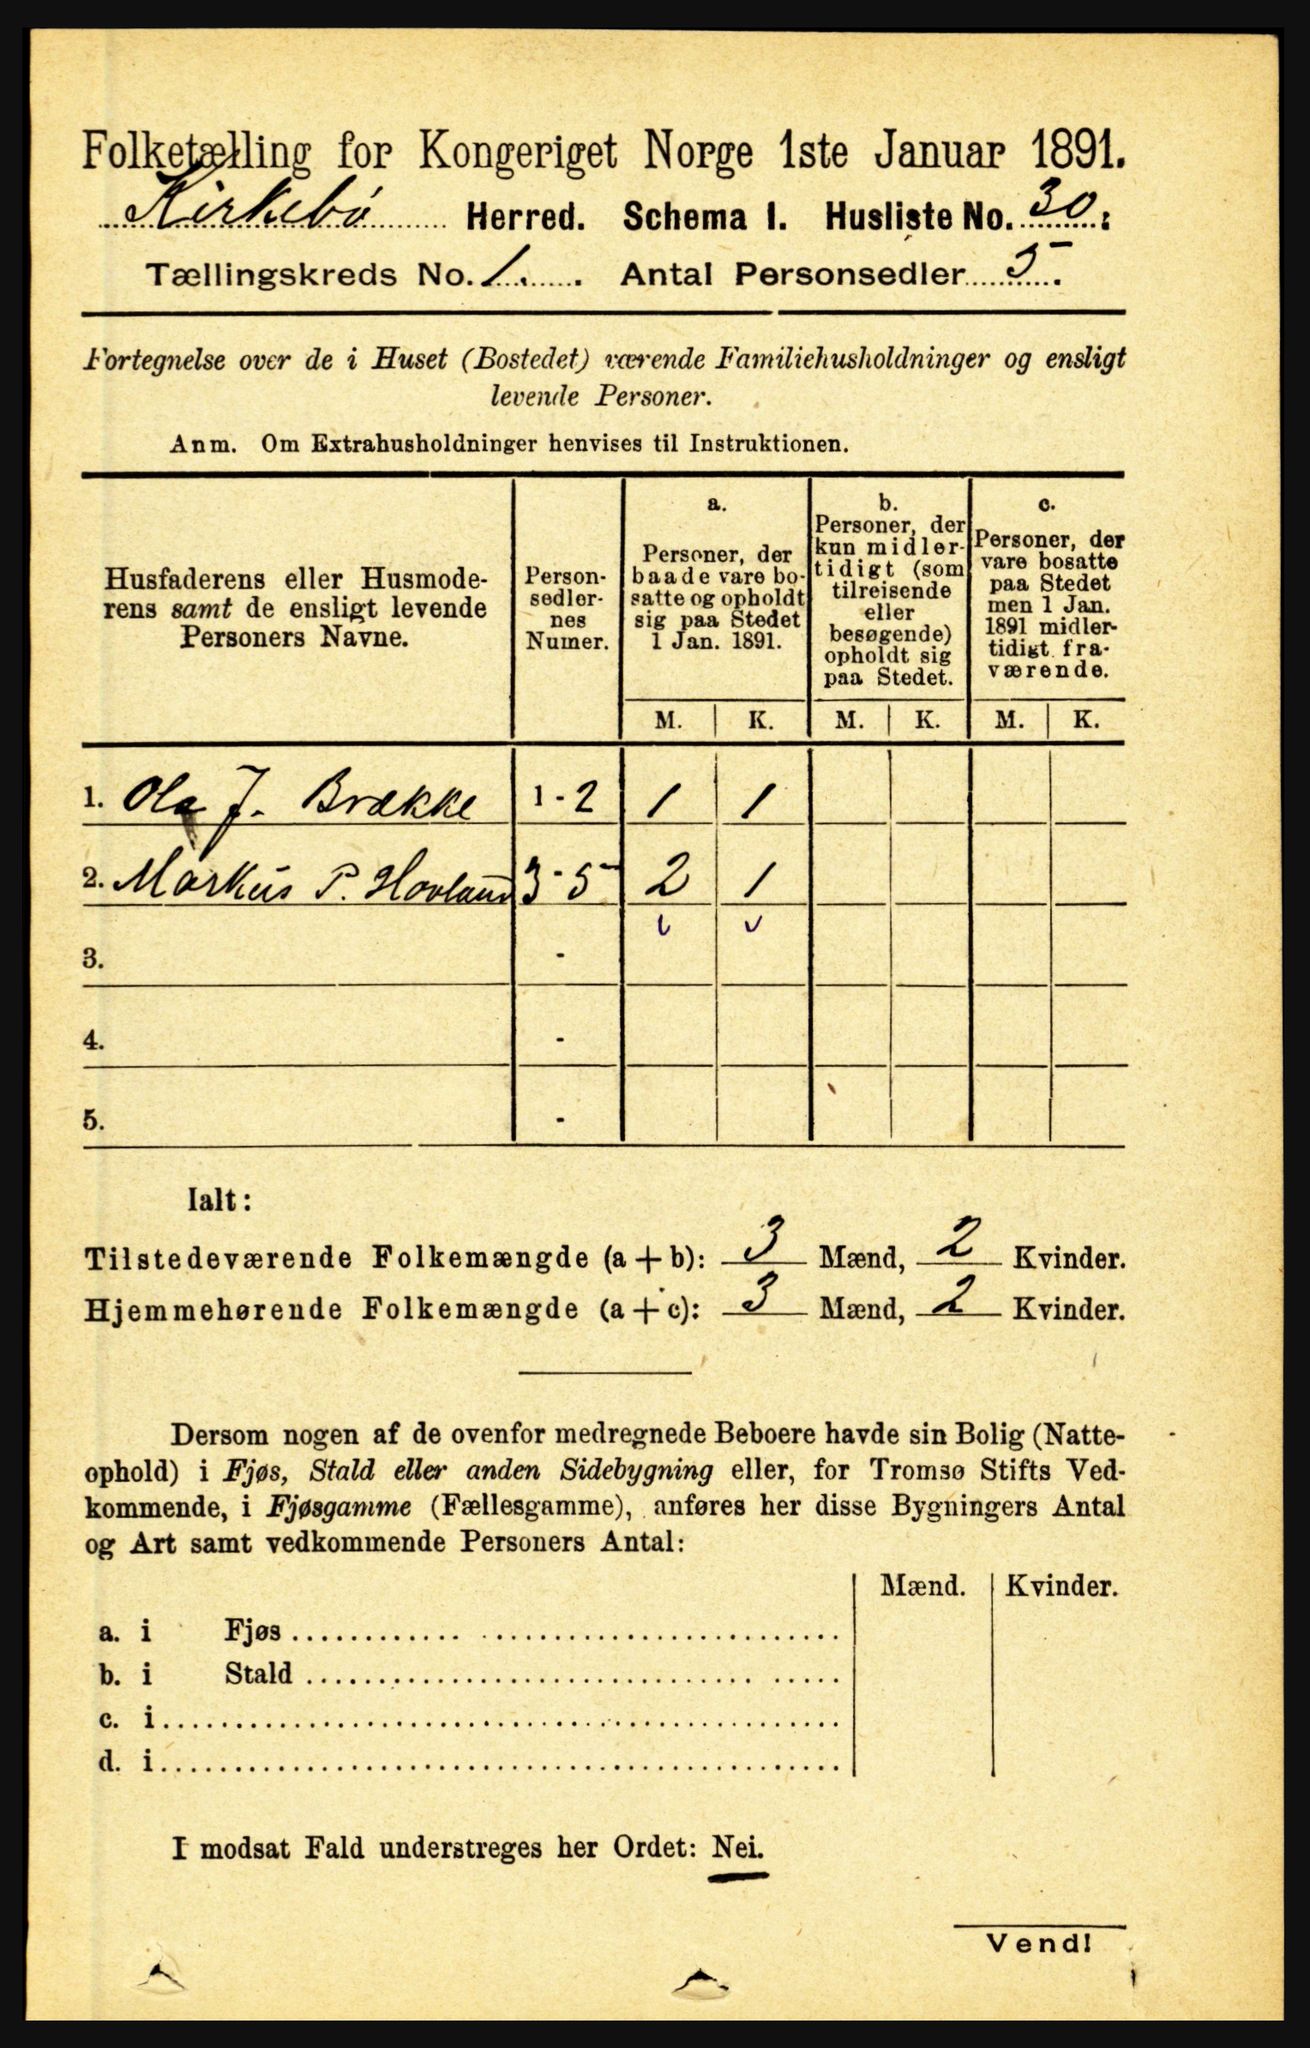 Folketælling for Kongeriget Norge 1ste Januar 1891.
Kirkebø Herred. Schema I. Husliste No. 30.
Tællingskreds No. 1. Antal Personsedler 5.
Fortegnelse over de i Huset (Bostedet) værende Familiehusholdninger og ensligt
levende Personer.
Anm. Om Extrahusholdninger henvises til Instruktionen.
Husfaderens eller Husmode-
rens samt de ensligt levende
Personers Navne.
Person-
sedler-
nes
Numer.
a.
Personer, der
baade vare bo-
satte og opholdt
sig paa Stedet
1 Jan. 1891.
b.
Personer, der
kun midler-
tidigt (som
tilreisende
eller
besøgende)
opholdt sig
paa Stedet.
c.
Personer, der
vare bosatte
paa Stedet
men 1 Jan.
1891 midler-
tidigt fra-
værende.
M. K. M. K. M. K.
1. Ola J. Brække 1 - 2 1 1
2. Markus P. Hovland 3 - 5 2 1
3. -
4. -
5. -
Ialt:
Tilstedeværende Folkemængde (a + b): 3 Mænd, 2 Kvinder.
Hjemmehørende Folkemængde (a + c): 3 Mænd, 2 Kvinder.
Dersom nogen af de ovenfor medregnede Beboere havde sin Bolig (Natte-
ophold) i Fjøs, Stald eller anden Sidebygning eller, for Tromsø Stifts Ved-
kommende, i Fjøsgamme (Fællesgamme), anføres her disse Bygningers Antal
og Art samt vedkommende Personers Antal:
Mænd. Kvinder.
a. i Fjøs
b. i Stald
c. i
d. i
I modsat Fald understreges her Ordet: Nei.
Vend!